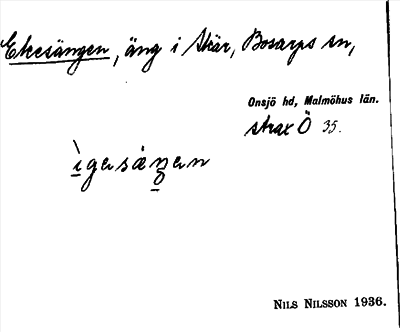 Ekesängen, äng i Skär, Bosarps sn,
Onsjö hd, Malmöhus län.
strax Ö 35.
ìgəsäŋən
NILS NILSSON 1936.